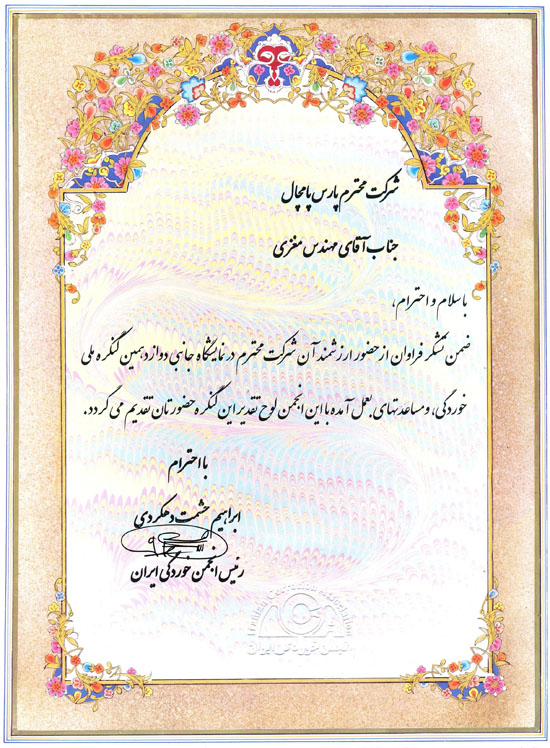 شرکت محترم پارس پامچال
جناب آقای مهندس مغزی
با سلام و احترام،
ضمن تشکر فراوان از حضور ارزشمند آن شرکت محترم در نمایشگاه جانبی دوازدهمین کنگره ملی
خوردگی، و مساعدتهای بعمل آمده با این انجمن لوح تقدیر این کنگره حضورتان تقدیم می گردد.
با احترام
ابراهیم حشمت دهکردی
رئیس انجمن خوردگی ایران
Iranian Corrosion Association
ICA
انجمن خوردگی ایران